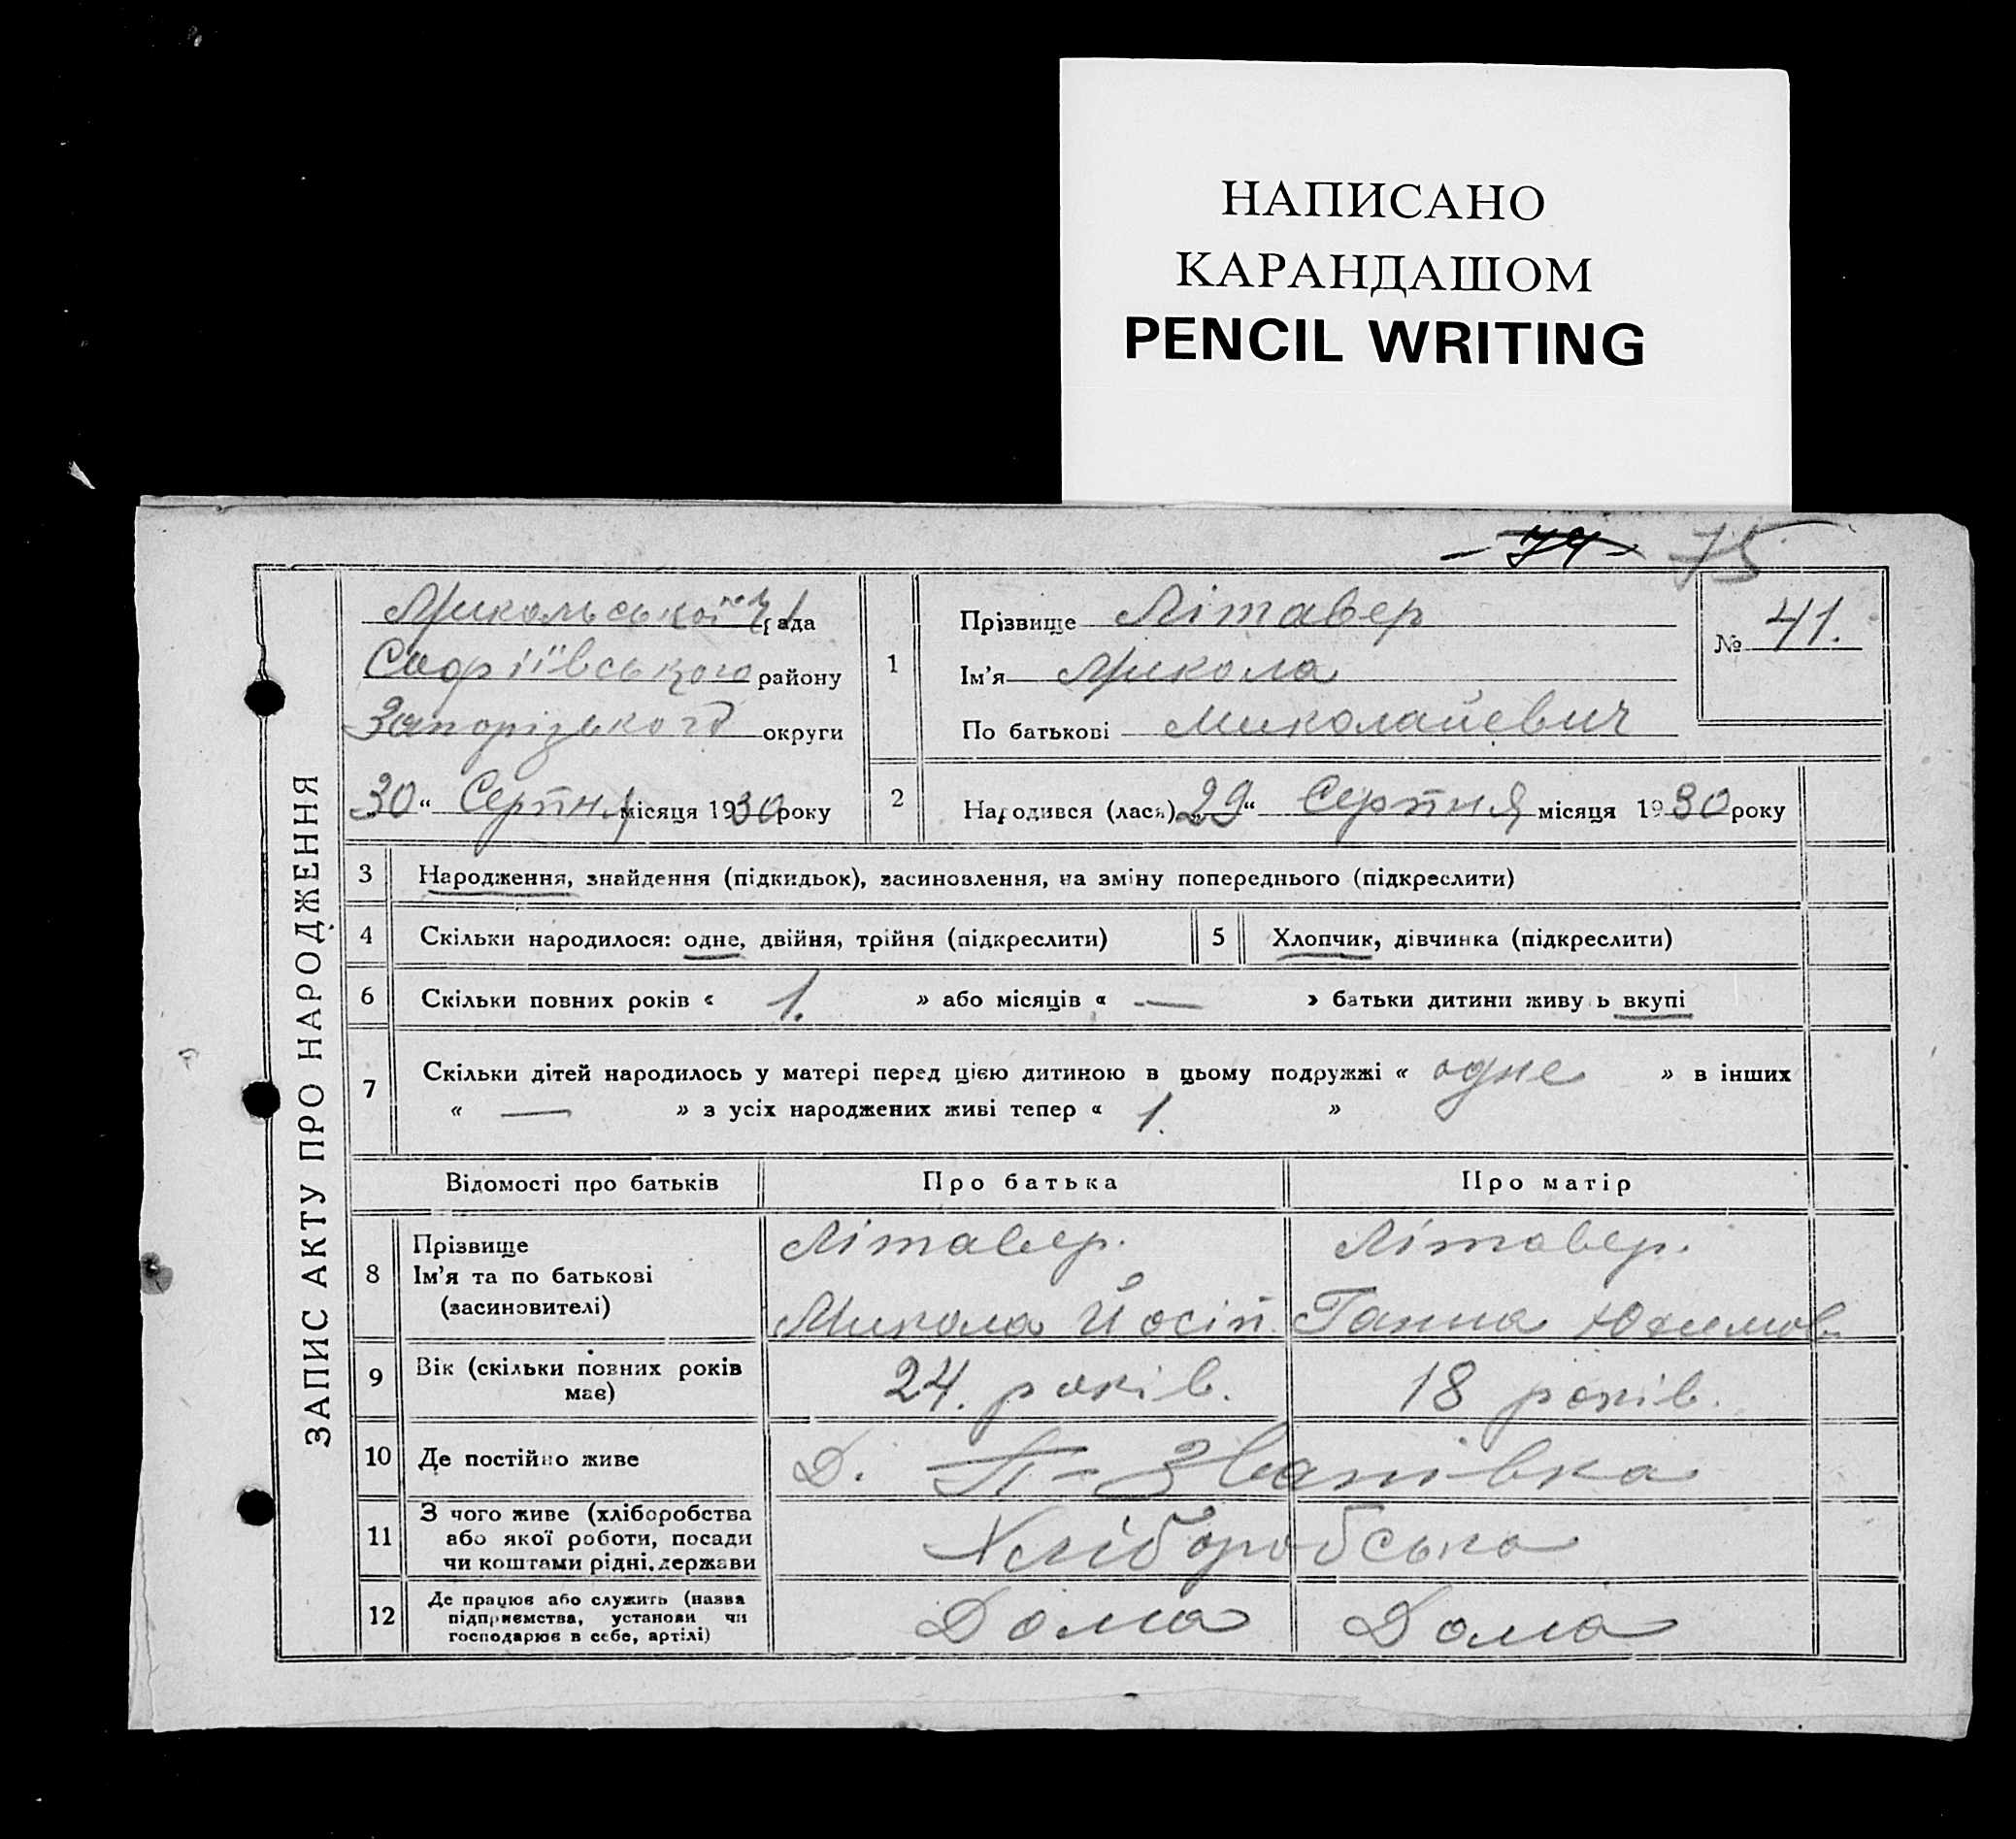 НАПИСАНО
КАРАНДАШОМ
PENCIL WRITING
74 75
ЗАПИС АКТУ ПРО НАРОДЖЕННЯ
Микольської рада
Софіївського району
Запорізького округи
30 “ Серпня місяця 1930 року
1
Прізвище Літавер
Ім'я Микола
По батькові Миколайевич
№ 41.
2 Народився (лася) 29 “ Серпня місяця 1930 року
3 Народження, знайдення (підкидьок), засиновлення, на зміну попереднього (підкреслити)
4 Скільки народилося: одне, двійня, трійня (підкреслити) 5 Хлопчик, дівчинка (підкреслити)
6 Скільки повних років « 1. » або місяців « — » батьки дитини живуть вкупі
7 Скільки дітей народилось у матері перед цією дитиною в цьому подружжі « одне » в інших
« — » з усіх народжених живі тепер « 1. »
Відомості про батьків Про батька Про матір
8 Прізвище Літавер. Літавер.
Ім'я та по батькові
(засиновителі) Микола Йосіп. Ганна Юхимов.
9 Вік (скільки повних років має) 24. років. 18 років.
10 Де постійно живе Д. П-Званівка
11 З чого живе (хліборобства
або якої роботи, посади
чи коштами рідні, держави Хліборобська
12 Де працює або служить (назва
підприємства, установи чи
господарює в себе, артілі) Дома Дома